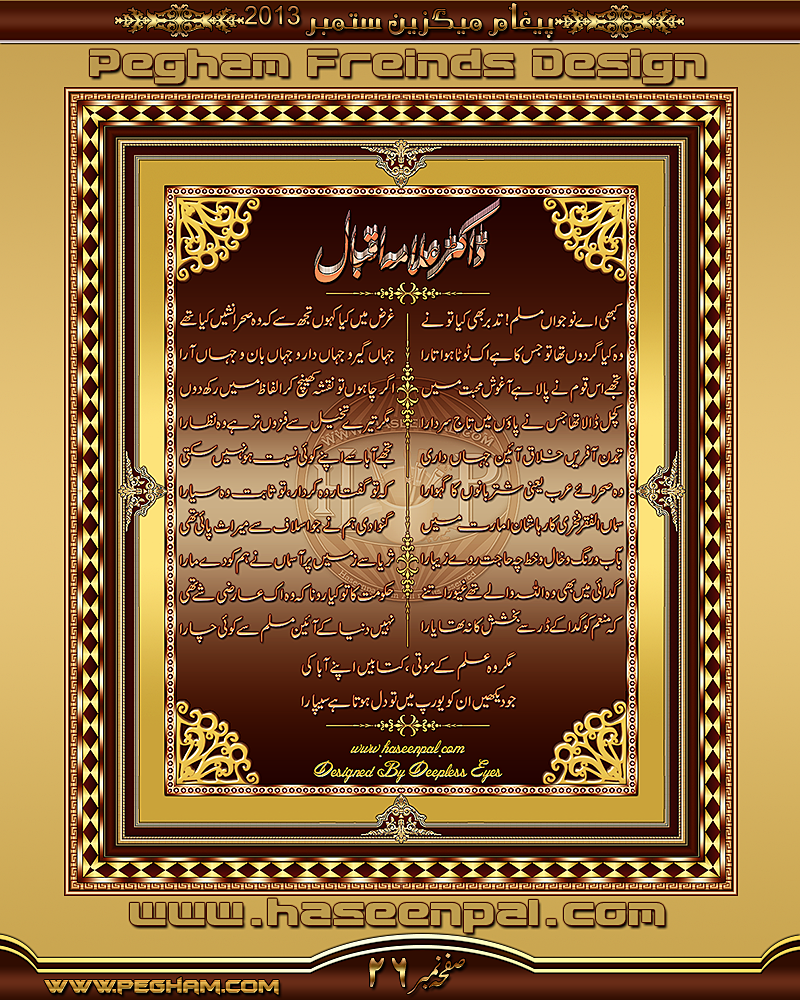 پیغام میگزین ستمبر 2013
Pegham Freinds Design
ڈاکٹر علامہ اقبال
کبھی اے نوجواں مسلم! تدبر بھی کیا تو نے
وہ کیا گردوں تھا تو جس کا ہے اک ٹوٹا ہوا تارا
تجھے اس قوم نے پالا ہے آغوش محبت میں
کچل ڈالا تھا جس نے پاؤں میں تاج سر دارا
تمدن آفریں خلاق آئین جہاں داری
وہ صحرائے عرب یعنی شتربانوں کا گہوارا
سماں الفقر فخری کا رہا شان امارت میں
بآب و رنگ و خال و خط چہ حاجت روے زیبا را
گدائی میں بھی وہ اللہ والے تھے غیور اتنے
کہ منعم کو گدا کے ڈر سے بخشش کا نہ تھا یارا
غرض میں کیا کہوں تجھ سے کہ وہ صحرا نشیں کیا تھے
جہاں گیر و جہاں دار و جہاں بان و جہاں آرا
اگر چاہوں تو نقشہ کھینچ کر الفاظ میں رکھ دوں
مگر تیرے تخیل سے فزوں تر ہے وہ نظارا
تجھے آبا سے اپنے کوئی نسبت ہو نہیں سکتی
کہ تو گفتار وہ کردار، تو ثابت وہ سیارا
گنوا دی ہم نے جو اسلاف سے میراث پائی تھی
ثریا سے زمیں پر آسماں نے ہم کو دے مارا
حکومت کا تو کیا رونا کہ وہ اک عارضی شے تھی
نہیں دنیا کے آئین مسلم سے کوئی چارا
مگر وہ علم کے موتی، کتابیں اپنے آبا کی
جو دیکھیں ان کو یورپ میں تو دل ہوتا ہے سیپارا
www.haseenpal.com
Designed By Deepless Eyes
www.haseenpal.com
صفحہ نمبر ۲۶
WWW.PEGHAM.COM